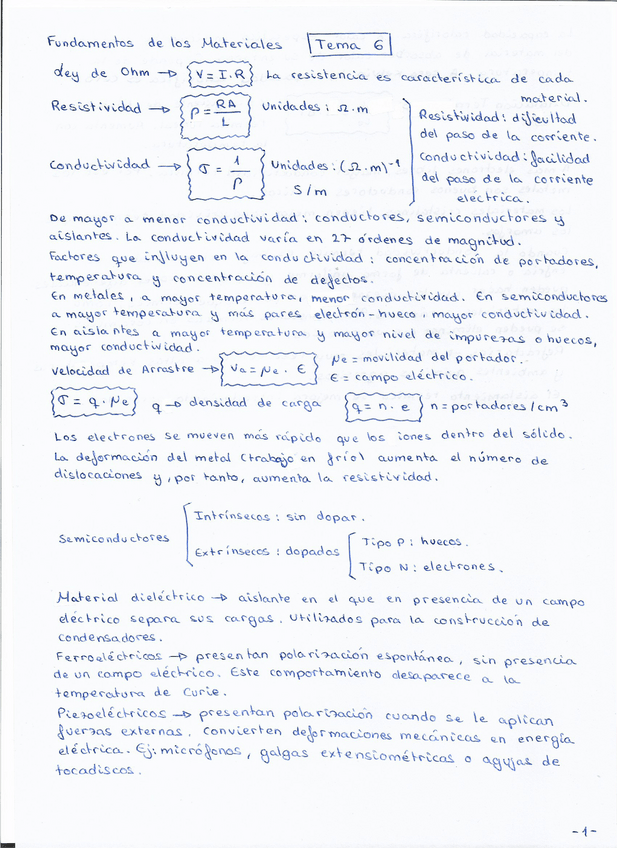 Fundamentos de los Materiales Tema 6
Ley de Ohm → V = I.R La resistencia es característica de cada material.
Resistividad → ρ = RA/L Unidades: Ω.m
Conductividad → σ = 1/ρ Unidades: (Ω.m)⁻¹
S/m
Resistividad: dificultad
del paso de la corriente.
Conductividad: facilidad
del paso de la corriente
eléctrica.
De mayor a menor conductividad: conductores, semiconductores y
aislantes. La conductividad varía en 27 órdenes de magnitud.
Factores que influyen en la conductividad: concentración de portadores,
temperatura y concentración de defectos.
En metales, a mayor temperatura, menor conductividad. En semiconductores
a mayor temperatura y más pares electrón-hueco, mayor conductividad.
En aislantes a mayor temperatura y mayor nivel de impurezas o huecos,
mayor conductividad.
Velocidad de Arrastre → Va = μe . ε μe = movilidad del portador.
ε = campo eléctrico.
σ = q . μe q → densidad de carga q = n . e n = portadores/cm³
Los electrones se mueven más rápido que los iones dentro del sólido.
La deformación del metal (trabajo en frío) aumenta el número de
dislocaciones y, por tanto, aumenta la resistividad.
Semiconductores
Intrínsecos: sin dopar.
Extrínsecos: dopados
Tipo P: huecos.
Tipo N: electrones.
Material dieléctrico → aislante en el que en presencia de un campo
eléctrico separa sus cargas. Utilizados para la construcción de
condensadores.
Ferroeléctricos → presentan polarización espontánea, sin presencia
de un campo eléctrico. Este comportamiento desaparece a la
temperatura de Curie.
Piezoeléctricos → presentan polarización cuando se le aplican
fuerzas externas. Convierten deformaciones mecánicas en energía
eléctrica. Ej: micrófonos, galgas extensiométricas o agujas de
tocadiscos.
-1-